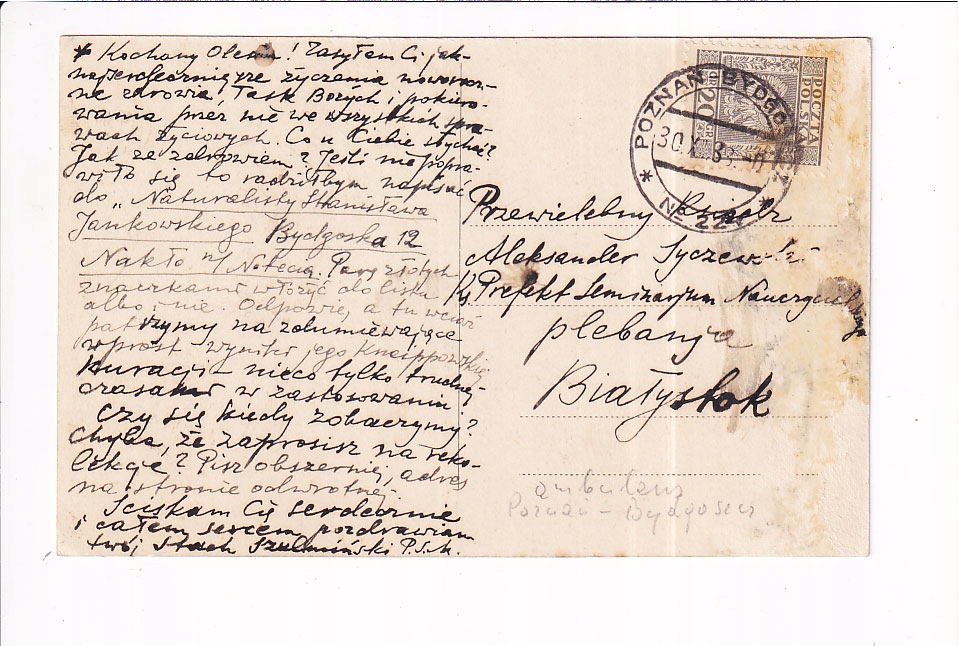 * Kochany Olesiu! Zasyłam Ci jak-
najserdeczniejsze życzenia noworocz-
ne zdrowia, Łask Bożych i pokiero-
wania przez nie we wszystkich spra-
wach życiowych. Co u Ciebie słychać?
Jak ze zdrowiem? Jeśli nie popra-
wiło się to radziłbym napisać
do „Naturalisty Stanisława
Jankowskiego Bydgoska 12
Nakło n/Notecią. Parę złotych
znaczkami włożyć do listu
albo i nie. Odpowie, a tu wciąż
patrzymy na zdumiewające
wprost wyniki jego Kneippowskiej
kuracji - nieco tylko trudnej
czasami w zastosowaniu.
Czy się kiedy zobaczymy?
Chyba, że zaprosisz na reko-
lekcje? Pisz obszerniej, adres
na stronie odwrotnej.
Ściskam Cię serdecznie
i całem sercem pozdrawiam
twój Stach Szulmiński P.S.M.
POZNAŃ BYDGOSZCZ
30.X
№ 221
POCZTA
POLSKA
GR 20 GR
Przewielebny Ksiądz
Aleksander Syczewski
Ks Prefekt Seminarjum
plebanja
Białystok
ambulans
Poznań - Bydgoszcz